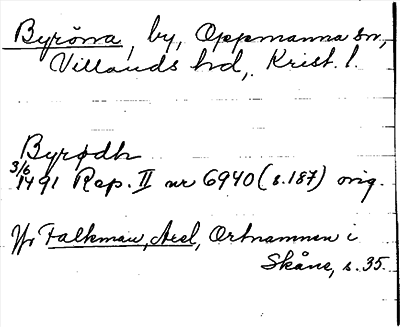 Byröna, by, Oppmanna sn,
Villands hd, Krist. l.
Byrødh
3/6 1491 Rep. II nr 6940 (s. 187) orig.
Jfr Falkman, Axel, Ortnamnen i
Skåne, s. 35.